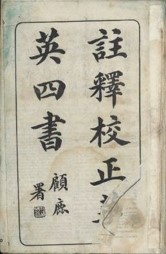 註釋校正
英四書
顧
署